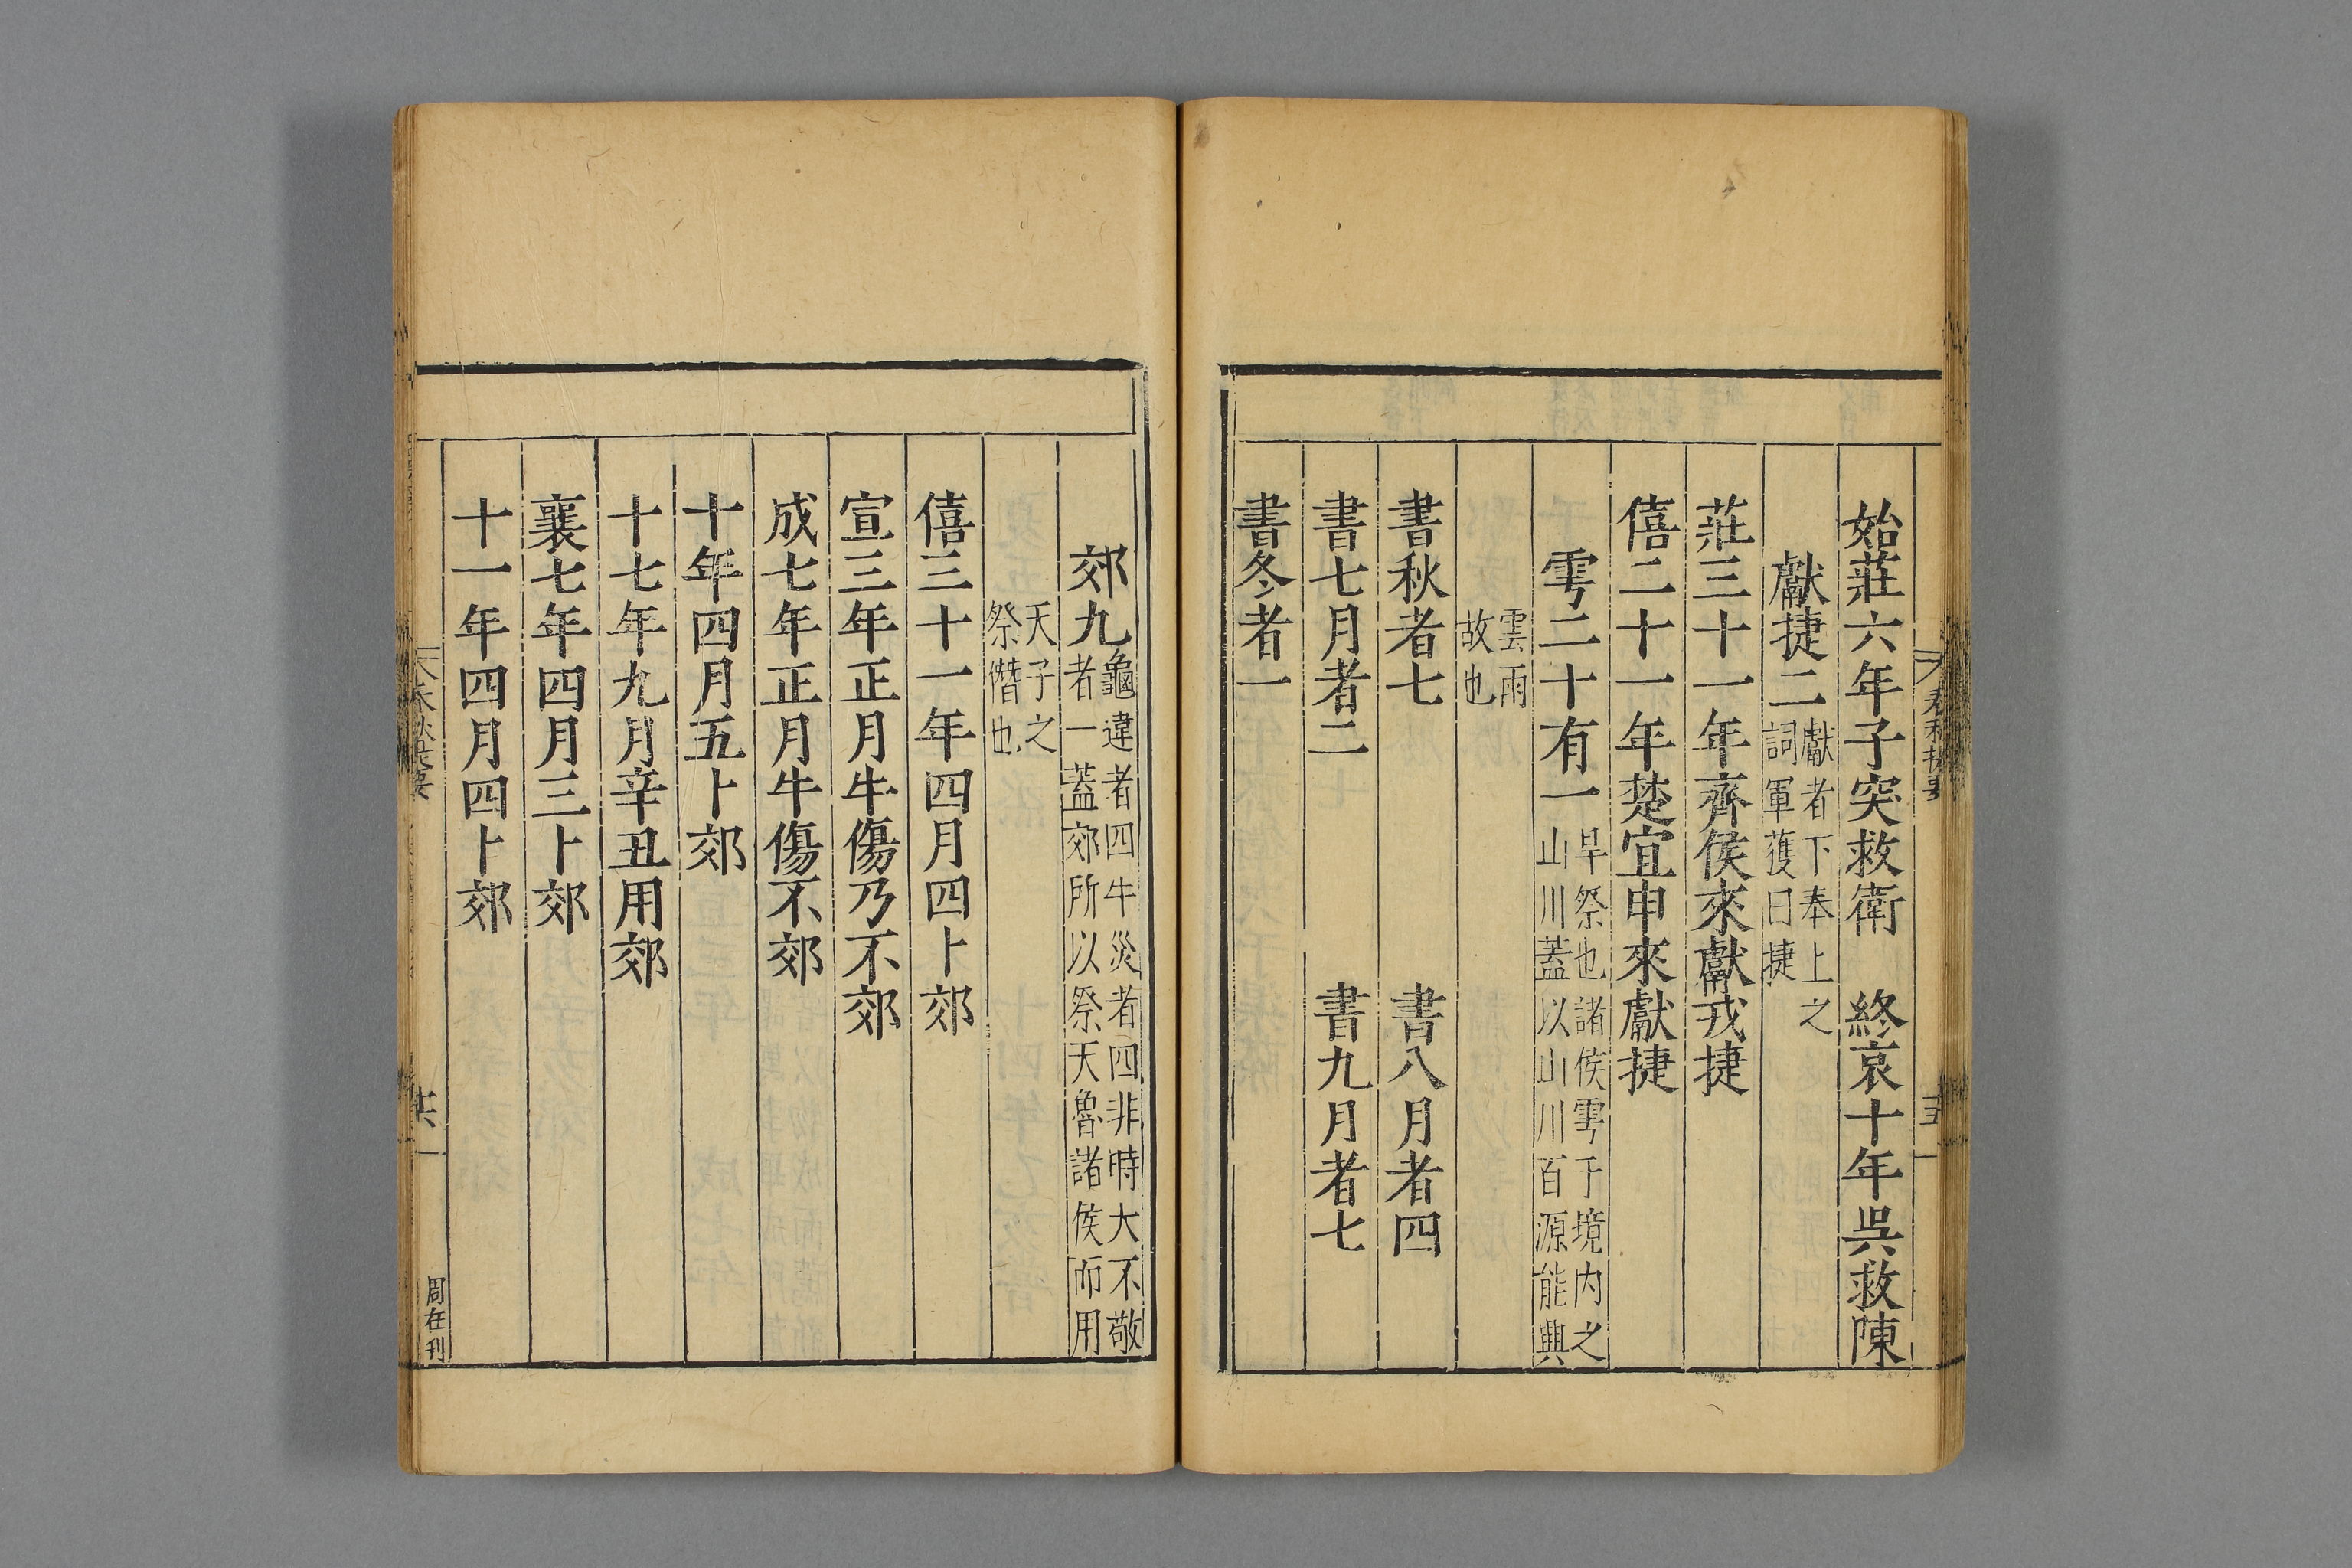 始莊六年子突救衛　終哀十年吳救陳
獻捷二獻者下奉上之
詞軍獲曰捷
莊三十一年齊侯來獻戎捷
僖二十一年楚宜申來獻捷
雩二十有一旱祭也諸侯雩于境内之
山川蓋以山川百源能興
雲雨
故也
書秋者七　書八月者四
書七月者二　書九月者七
書冬者一
郊九龜違者四牛災者四非時大不敬
者一蓋郊所以祭天魯諸侯而用
天子之
祭僭也
僖三十一年四月四卜郊
宣三年正月牛傷乃不郊
成七年正月牛傷不郊
十年四月五卜郊
十七年九月辛丑用郊
襄七年四月三卜郊
十一年四月四卜郊
春秋提要
周在刊